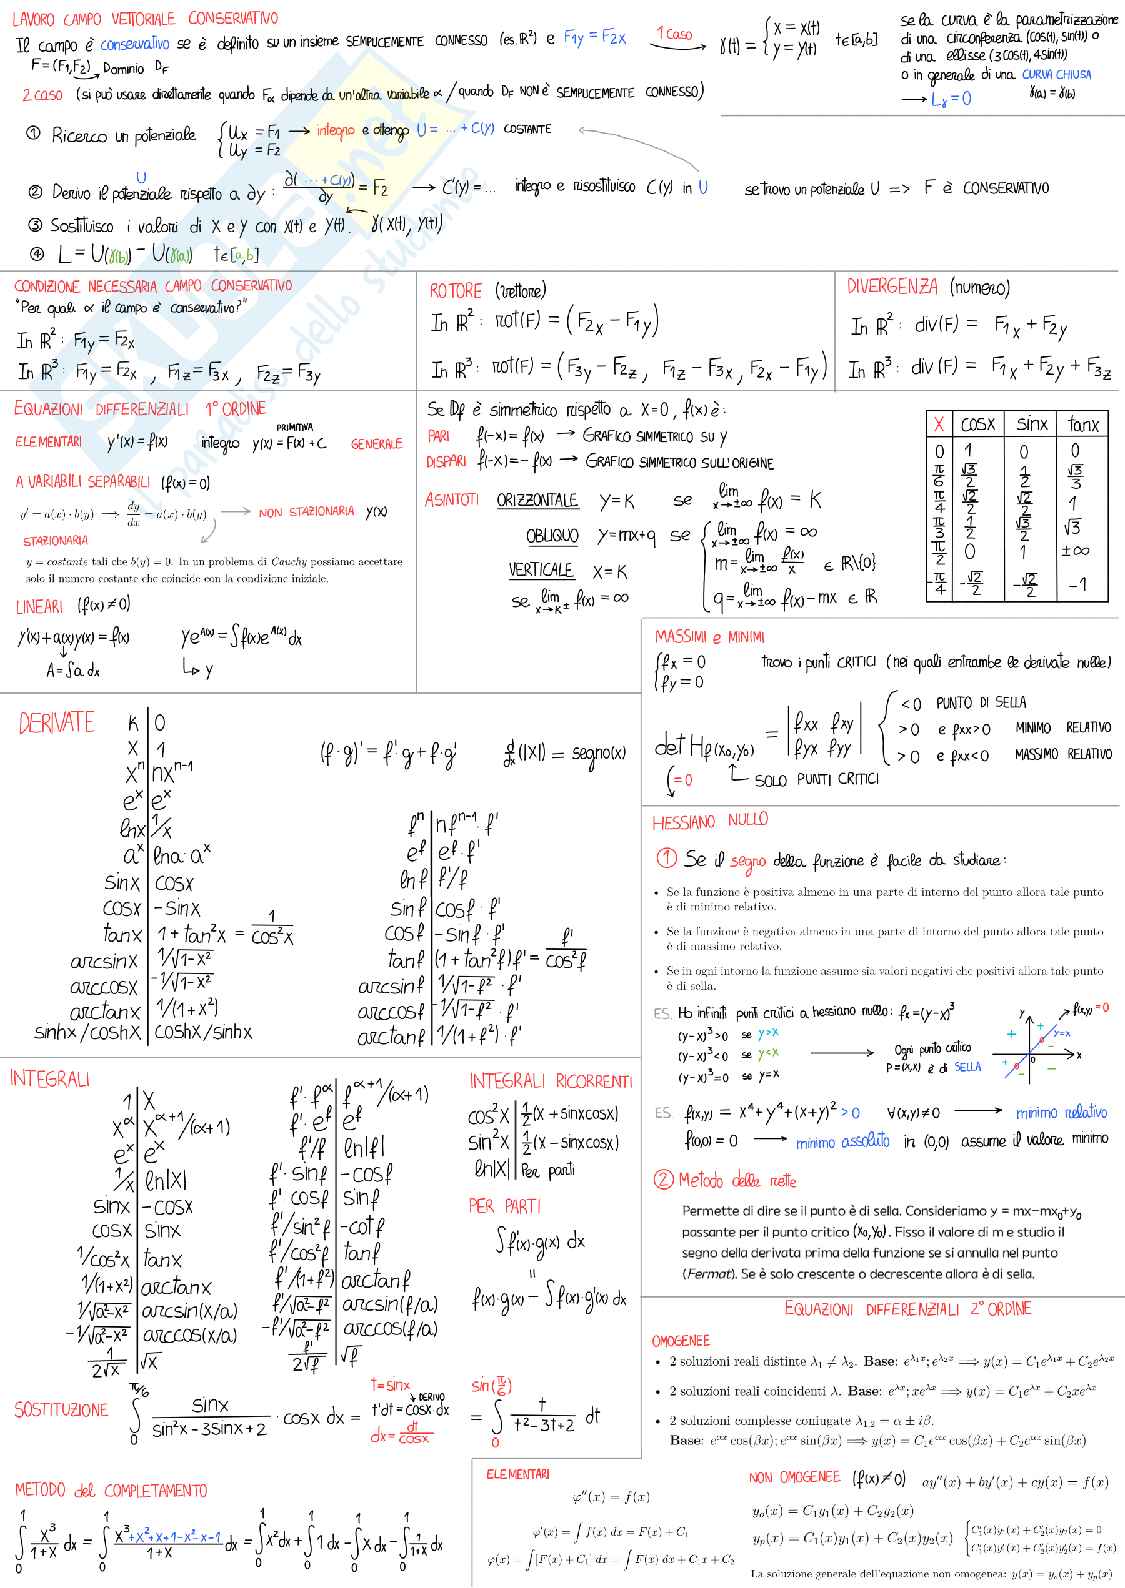 LAVORO CAMPO VETTORIALE CONSERVATIVO
Il campo è conservativo se è definito su un insieme SEMPLICEMENTE CONNESSO (es. ℝ²) e F₁y = F₂x
F = (F₁, F₂) Dominio D_F
1 caso
γ(t) = { x = x(t) y = y(t) t∈[a,b]
se la curva è la parametrizzazione
di una circonferenza (cos(t), sin(t)) o
di una ellisse (3cos(t), 4sin(t))
o in generale di una CURVA CHIUSA
→ Lγ = 0 γ(a) = γ(b)
2 caso (si può usare direttamente quando Fα dipende da un'altra variabile α / quando D_F NON è SEMPLICEMENTE CONNESSO)
① Ricerco un potenziale { Ux = F₁ → integro e ottengo U = ... + C(y) COSTANTE
Uy = F₂
② Derivo il potenziale rispetto a ∂y : ∂(... + C(y))/∂y = F₂ → C'(y) = ... integro e risostituisco C(y) in U
U
se trovo un potenziale U => F è CONSERVATIVO
③ Sostituisco i valori di x e y con x(t) e y(t). γ(x(t), y(t))
④ L = U(γ(b)) − U(γ(a)) t∈[a,b]
SKUOLA.net
il paradiso dello studente
CONDIZIONE NECESSARIA CAMPO CONSERVATIVO
"Per quali α il campo è conservativo?"
In ℝ² : F₁y = F₂x
In ℝ³ : F₁y = F₂x , F₁z = F₃x , F₂z = F₃y
ROTORE (vettore)
In ℝ² : rot(F) = (F₂x − F₁y)
In ℝ³ : rot(F) = (F₃y − F₂z , F₁z − F₃x , F₂x − F₁y)
DIVERGENZA (numero)
In ℝ² : div(F) = F₁x + F₂y
In ℝ³ : div(F) = F₁x + F₂y + F₃z
EQUAZIONI DIFFERENZIALI 1° ORDINE
ELEMENTARI y'(x) = f(x) integro y(x) = F(x) + C GENERALE
PRIMITIVA
A VARIABILI SEPARABILI (f(x) = 0)
y' = a(x) · b(y) ⟹ dy/dx = a(x) · b(y) → NON STAZIONARIA y(x)
STAZIONARIA
y = costante tali che b(y) = 0. In un problema di Cauchy possiamo accettare
solo il numero costante che coincide con la condizione iniziale.
LINEARI (f(x) ≠ 0)
y'(x) + a(x)y(x) = f(x) y e^A(x) = ∫f(x)e^A(x) dx
A = ∫a dx ↳ y
Se Df è simmetrico rispetto a x = 0, f(x) è :
PARI f(−x) = f(x) → GRAFICO SIMMETRICO SU y
DISPARI f(−x) = −f(x) → GRAFICO SIMMETRICO SULL'ORIGINE
ASINTOTI ORIZZONTALE y = K se lim x→±∞ f(x) = K
OBLIQUO y = mx+q se { lim x→±∞ f(x) = ∞
m = lim x→±∞ f(x)/x ∈ ℝ\{0}
q = lim x→±∞ f(x) − mx ∈ ℝ
VERTICALE x = K
se lim x→K± f(x) = ∞
x cosx sinx tanx
0 1 0 0
π/6 √3/2 1/2 √3/3
π/4 √2/2 √2/2 1
π/3 1/2 √3/2 √3
π/2 0 1 ±∞
−π/4 −√2/2 −√2/2 −1
MASSIMI e MINIMI
{ fx = 0 trovo i punti CRITICI (nei quali entrambe le derivate nulle)
fy = 0
det Hf(x₀,y₀) = | fxx fxy |
| fyx fyy |
< 0 PUNTO DI SELLA
> 0 e fxx > 0 MINIMO RELATIVO
> 0 e fxx < 0 MASSIMO RELATIVO
= 0 SOLO PUNTI CRITICI
DERIVATE
K | 0
x | 1
xⁿ | nxⁿ⁻¹
eˣ | eˣ
lnx | 1/x
aˣ | lna · aˣ
sinx | cosx
cosx | −sinx
tanx | 1 + tan²x = 1/cos²x
arcsinx | 1/√1−x²
arccosx | −1/√1−x²
arctanx | 1/(1+x²)
sinhx/coshx | coshx/sinhx
(f · g)' = f' · g + f · g' d/dx(|x|) = segno(x)
fⁿ | nfⁿ⁻¹ · f'
e^f | e^f · f'
ln f | f'/f
sinf | cosf · f'
cosf | −sinf · f'
tanf | (1 + tan²f) f' = f'/cos²f
arcsinf | 1/√1−f² · f'
arccosf | −1/√1−f² · f'
arctanf | 1/(1+f²) · f'
HESSIANO NULLO
① Se il segno della funzione è facile da studiare :
• Se la funzione è positiva almeno in una parte di intorno del punto allora tale punto
è di minimo relativo.
• Se la funzione è negativa almeno in una parte di intorno del punto allora tale punto
è di massimo relativo.
• Se in ogni intorno la funzione assume sia valori negativi che positivi allora tale punto
è di sella.
ES. Ho infiniti punti critici a hessiano nullo : fx = (y−x)³
(y−x)³ > 0 se y > x
(y−x)³ < 0 se y < x
(y−x)³ = 0 se y = x
Ogni punto critico
P = (x,x) è di SELLA
f(x,y) = 0
y
y=x
x
0
ES. f(x,y) = x⁴ + y⁴ + (x+y)² > 0 ∀(x,y) ≠ 0 → minimo relativo
f(0,0) = 0 → minimo assoluto in (0,0) assume il valore minimo
② Metodo delle rette
Permette di dire se il punto è di sella. Consideriamo y = mx−mx₀+y₀
passante per il punto critico (x₀,y₀). Fisso il valore di m e studio il
segno della derivata prima della funzione se si annulla nel punto
(Fermat). Se è solo crescente o decrescente allora è di sella.
INTEGRALI
1 | x
x^α | x^α+1/(α+1)
eˣ | eˣ
1/x | ln|x|
sinx | −cosx
cosx | sinx
1/cos²x | tanx
1/(1+x²) | arctanx
1/√a²−x² | arcsin(x/a)
−1/√a²−x² | arccos(x/a)
1/2√x | √x
f' · f^α | f^α+1/(α+1)
f' · e^f | e^f
f'/f | ln|f|
f' · sinf | −cosf
f' cosf | sinf
f'/sin²f | −cotf
f'/cos²f | tanf
f'/(1+f²) | arctanf
f'/√a²−f² | arcsin(f/a)
−f'/√a²−f² | arccos(f/a)
f'/2√f | √f
INTEGRALI RICORRENTI
cos²x | 1/2(x + sinxcosx)
sin²x | 1/2(x − sinxcosx)
ln|x| | Per parti
PER PARTI
∫f'(x)·g(x) dx
=
f(x)·g(x) − ∫f(x)·g'(x) dx
SOSTITUZIONE ∫₀^π/6 sinx/(sin²x − 3sinx + 2) · cosx dx = t = sinx t'dt = cosx dx → DERIVO dx = dt/cosx = ∫₀^sin(π/6) t/(t²−3t+2) dt
METODO del COMPLETAMENTO
∫₀¹ x³/(1+x) dx = ∫₀¹ (x³+x²+x+1−x²−x−1)/(1+x) dx = ∫₀¹ x²dx + ∫₀¹ 1dx − ∫₀¹ x dx − ∫₀¹ 1/(1+x) dx
EQUAZIONI DIFFERENZIALI 2° ORDINE
OMOGENEE
• 2 soluzioni reali distinte λ₁ ≠ λ₂. Base: e^λ₁x; e^λ₂x ⟹ y(x) = C₁e^λ₁x + C₂e^λ₂x
• 2 soluzioni reali coincidenti λ. Base: e^λx; xe^λx ⟹ y(x) = C₁e^λx + C₂xe^λx
• 2 soluzioni complesse coniugate λ₁,₂ = α ± iβ.
Base: e^αx cos(βx); e^αx sin(βx) ⟹ y(x) = C₁e^αx cos(βx) + C₂e^αx sin(βx)
ELEMENTARI
φ''(x) = f(x)
φ'(x) = ∫ f(x) dx = F(x) + C₁
φ(x) = ∫[F(x) + C₁] dx = ∫ F(x) dx + C₁x + C₂
NON OMOGENEE (f(x) ≠ 0) ay''(x) + by'(x) + cy(x) = f(x)
y₀(x) = C₁y₁(x) + C₂y₂(x)
yp(x) = C₁(x)y₁(x) + C₂(x)y₂(x) { C₁'(x)y₁(x) + C₂'(x)y₂(x) = 0
C₁'(x)y₁'(x) + C₂'(x)y₂'(x) = f(x)
La soluzione generale dell'equazione non omogenea: y(x) = y₀(x) + yp(x)